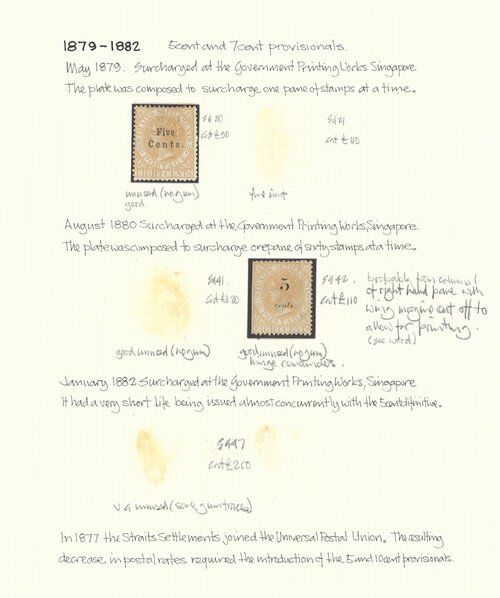 1879-1882 5cent and 7cent provisionals.
May 1879. Surcharged at the Government Printing Works Singapore
The plate was composed to surcharge one pane of stamps at a time.
SG 20
cat £90
SG21
STRAITS SETTLEMENTS
Five
Cents.
POSTAGE
EIGHT CENTS
unused (no gum)
good
fine mint
August 1880 Surcharged at the Government Printing Works, Singapore.
The plate was composed to surcharge one pane of sixty stamps at a time.
SG41.
SG42.
Cat £110
5
cents.
EIGHT CENTS
probably from column 1
of right hand pane with
wing margins cut off to
allow for printing.
good unused (no gum)
good unused (no gum)
hinge remainders.
January 1882 Surcharged at the Government Printing Works, Singapore
It had a very short life being issued almost concurrently with the 5cent definitive.
SG47
Cat £250
v.g unused (some gum traces)
In 1877 the Straits Settlements joined the Universal Postal Union. The resulting
decrease in postal rates required the introduction of the 5 and 10cent provisionals.